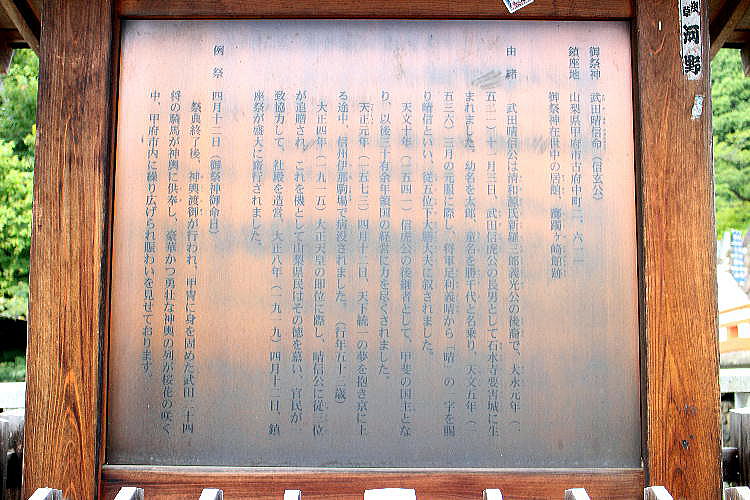 御祭神　武田晴信命（信玄公）
鎮座地　山梨県甲府市古府中町二、六一一
御祭神在世中の居館、躑躅ヶ崎館跡
由緒　武田晴信公は清和源氏新羅三郎義光公の後裔で、大永元年（一
五二一）十一月三日、武田信虎公の長男として石水寺要害城に生
まれました。幼名を太郎、童名を勝千代と名乗り、天文五年（一
五三六）三月の元服に際し、将軍足利義晴から「晴」の一字を賜
り晴信といい、従五位下大膳大夫に叙されました。
天文十年（一五四一）信虎公の後継者として、甲斐の国主とな
り、以後三十有余年領国の経営に力を尽くされました。
天正元年（一五七三）四月十二日、天下統一の夢を抱き京に上
る途中、信州伊那駒場で病没されました。（行年五十三歳）
大正四年（一九一五）大正天皇の即位に際し、晴信公に従三位
が追贈され、これを機として山梨県民はその徳を慕い、官民が一
致協力して、社殿を造営、大正八年（一九一九）四月十二日、鎮
座祭が盛大に斎行されました。
例祭　四月十二日（御祭神御命日）
祭典終了後、神輿渡御が行われ、甲冑に身を固めた武田二十四
将の騎馬が神輿に供奉し、豪華かつ勇壮な神輿の列が桜花の咲く
中、甲府市内に繰り広げられ賑わいを見せております。
河野